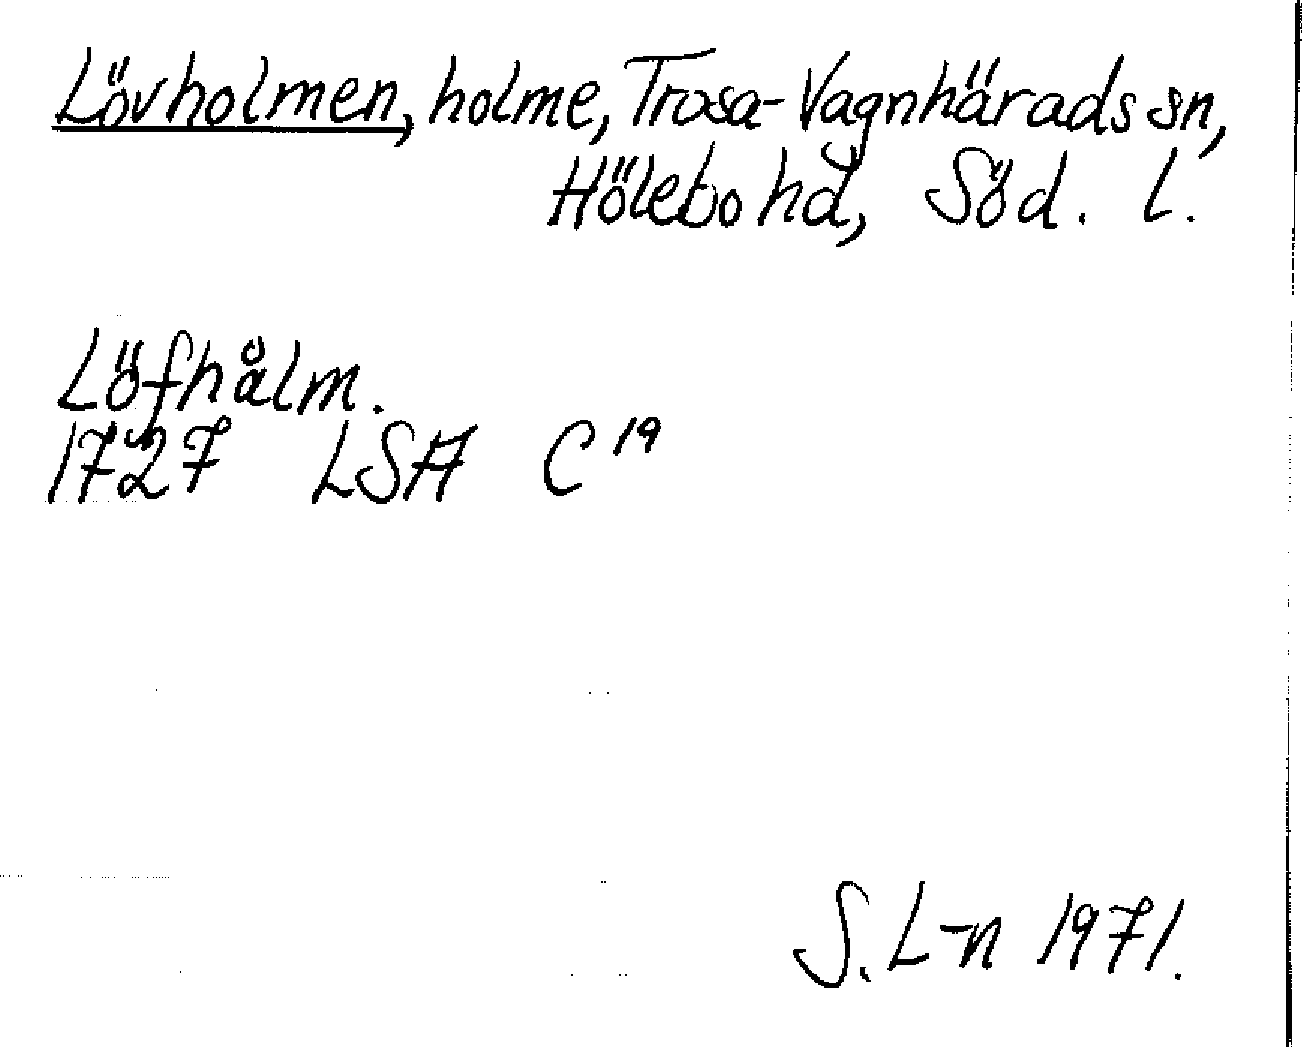 Lövholmen, holme, Trosa-Vagnhärads sn,
Hölebo hd, Söd. l.
Löfhålm.
1727 LSA C19
S. L-n 1971.